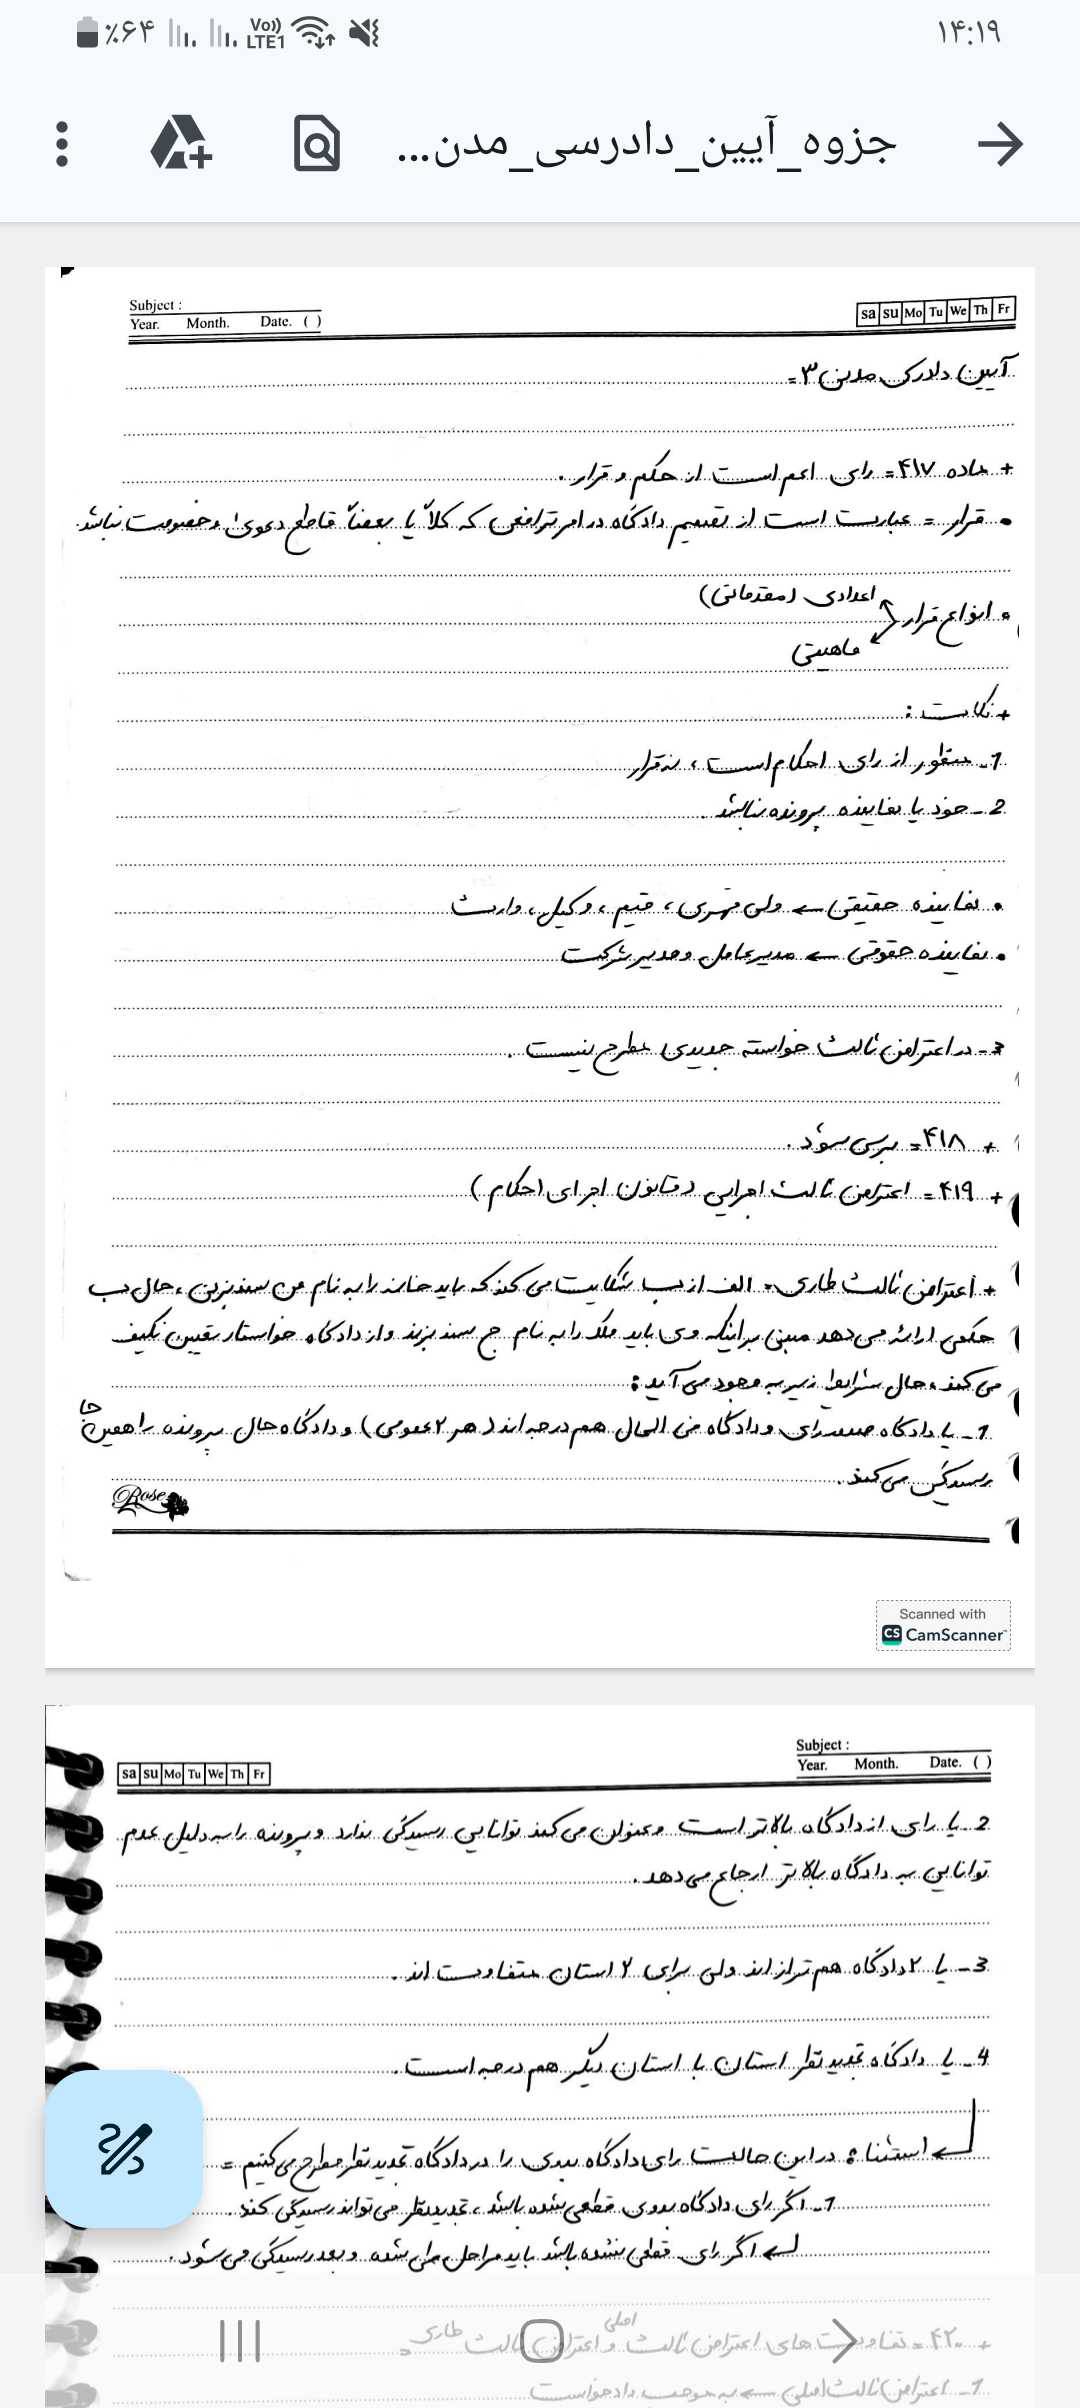 ٪۶۴ Vo)) LTE1 ۱۴:۱۹
جزوه_آیین_دادرسی_مدن...
Subject :
Year. Month. Date. ( )
sa su Mo Tu We Th Fr
آیین دادرسی مدنی ۳ =
+ ماده ۴۱۷ = رای اعم است از حکم و قرار.
• قرار = عبارت است از تصمیم دادگاه در امر ترافعی که کلاً یا بعضاً قاطع دعوی و خصومت نباشد.
• انواع قرار
اعدادی (مقدماتی)
ماهیتی
+ نکات:
1- منظور از رای احکام است، نه قرار
2- خود یا نماینده پرونده نباشد.
• نماینده حقیقی ← ولی قهری، قیم، وکیل، وارث
• نماینده حقوقی ← مدیرعامل و مدیر شرکت
3- در اعتراض ثالث خواسته جدیدی مطرح نیست.
+ ۴۱۸ = بررسی شود.
+ ۴۱۹ = اعتراض ثالث اجرایی (قانون اجرای احکام)
+ اعتراض ثالث طاری = الف از ب شکایت می کند که باید خانه را به نام من سند بزنی، حال ب
حکمی ارائه می دهد مبنی بر اینکه وی باید ملک را به نام ج سند بزند و از دادگاه خواستار تعیین تکلیف
می کند، حال شرایط زیر به وجود می آید:
1- یا دادگاه صدر رای و دادگاه فی الحال هم درجه اند (هر ۲ عمومی) و دادگاه حال پرونده را همین جا
رسیدگی می کند.
Rose
Scanned with
CS CamScanner
sa su Mo Tu We Th Fr
Subject :
Year. Month. Date. ( )
2- یا رای از دادگاه بالاتر است و عنوان می کند توانایی رسیدگی ندارد و پرونده را به دلیل عدم
توانایی به دادگاه بالاتر ارجاع می دهد.
3- یا ۲ دادگاه هم تراز اند ولی برای ۲ استان متفاوت اند.
4- یا دادگاه تجدید نظر استان با استان دیگر هم درجه است.
← استثنا: در این حالت رای دادگاه بدوی را در دادگاه تجدید نظر مطرح می کنیم =
1- اگر رای دادگاه بدوی قطعی شده باشد، تجدیدنظر می تواند رسیدگی کند.
← اگر رای قطعی نشده باشد باید مراحل طی شده و بعد رسیدگی می شود.
+ ۴۲۰ = تفاوت های اعتراض ثالث اصلی و اعتراض ثالث طاری =
1- اعتراض ثالث اصلی ← به موجب دادخواست